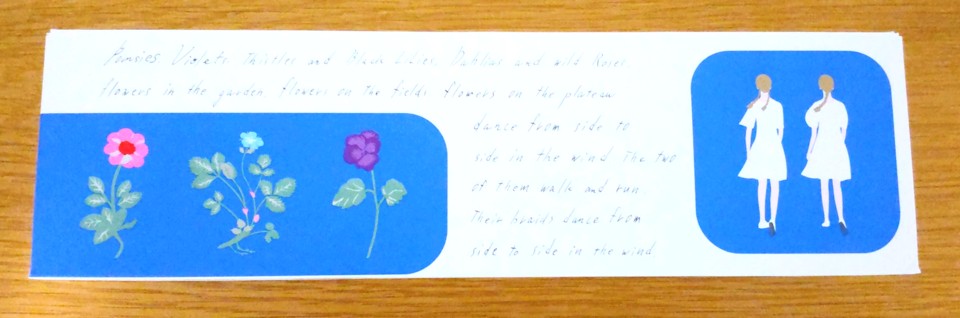 Pansies. Violets. Thistles and Black Lilies. Dahlias and wild Roses.
flowers in the garden. flowers on the fields. flowers on the plateau
dance from side to
side in the wind. The two
of them walk and run.
Their braids dance from
side to side in the wind